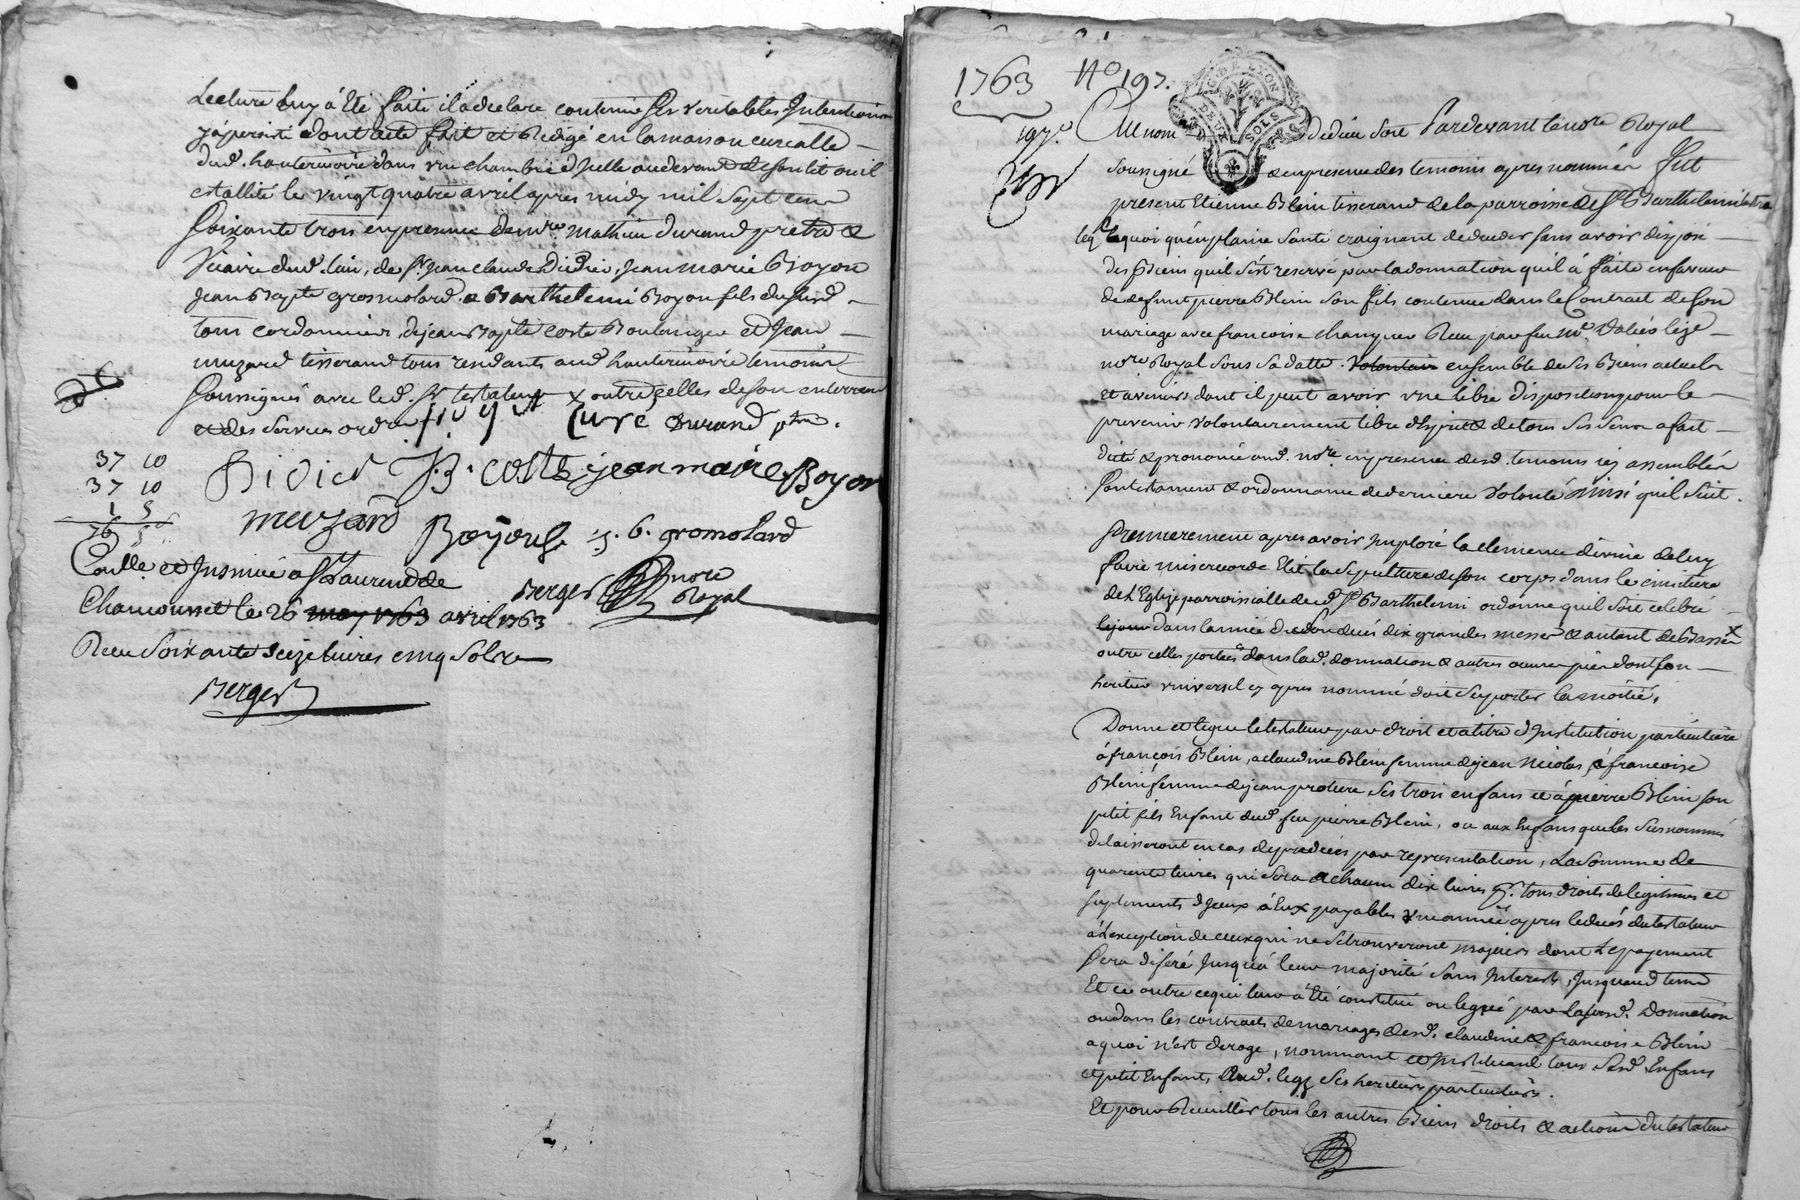 Lecture luy a été faite il a declaré contenir ses veritables Intentions
y a persisté dont acte fait et Redigé en la maison curialle
dud. hauterivoire dans une chambre d'jcelle au devant de son lit ou il
est allité le vingt quatre avril apres midy mil sept cent
soixante trois en presence de mre mathieu durand pretre &
vicaire dud. lieu, de sr jean claude Didier, jean marie Boyon
jean Bapte gromolard & Barthelemi Boyon fils dususd.
tous cordonnier, de jean Bapte coste Boulanger et Jean
muzard tisserand tous residants aud. hauterivoire temoins
soussignés avec led. sr testateur x outre celles de son enterrem
et des services ordre
curé Durand ptre.
37 10
37 10
1 5
76 5
Didier J.B. coste jean marie Boyon
muzard Boyon j. B. gromolard
Berger nore Royal
Conlle et Insinué a St Laurend de
Chamousset le 26 may 1763 avril 1763
Reçu soixante seize livres cinq sols
Berger
1763 No 197.
197e
GEN. DE LYON
DEUX SOLS
Au nom de dieu soit Pardevant le nore Royal
soussigné & en presence des temoins apres nommés fut
present Etienne Blein tisserand de la parroisse de St Barthelemi lestra
leq. quoi qu'en plaine santé craignant de deceder sans avoir disposé
des Biens qu'il s'est reservé par la donnation qu'il a faite en faveur
de defunt pierre Blein son fils contenue dans le Contrat de son
mariage avec francoise changneu Recu par feu me
nore Royal sous sa datte. volontair ensemble de ses Biens actuels
et avenirs dont il peut avoir une libre disposition pour le
prevenir volontairement libre d'esprit & de tous ses sens a fait
dicté & prononcé aud. nore en presence desd. temoins icy assemblés
son testament & ordonnance de derniere volonté ainsi qu'il suit.
Premierement apres avoir Imploré la clemence divine de luy
faire misericorde Elit la sepulture de son corps dans le cimetiere
de l'Eglize parroissialle dud. St Barthelemi ordonne qu'il soit celebré
le jour dans l'année de son decés dix grandes messes & autant de Basses x
outre celles portées dans lad. donnation & autres oeuvres pies dont son
heritier universel cy apres nommé doit suporter la moitié.
Donne et legue le testateur par droit et a titre d'Institution particuliere
a françois Blein, a claudine Blein femme de jean Nicolas, & francoise
Blein femme de jean protiere ses trois enfans et a pierre Blein son
petit fils Enfant dud. feu pierre Blein, ou aux Enfans que les susnommés
delaisseront en cas de predecés par representation, La somme de
quarente livres qui sera a chacun dix livres pr. tous droits de legitimes et
suplements d'jceux a Eux payables une année apres le decés du testateur
a l'exception de ceux qui ne se trouveront majeurs dont le payement
sera diferé Jusqu'a leur majorité sans Interests, Jusqu'aud. tems
Et ce outre ce qui leur a Eté constitué ou legué par la susd. Donnation
ou dans les contracts de mariages desd. claudine & francoise Blein
a quoi n'est derogé, nommant et Instituand tous sesd. Enfans
et petit Enfant, Aud. legs ses heritiers particuliers.
Et pour Recuillir tous les autres Biens droits & actions du testateur